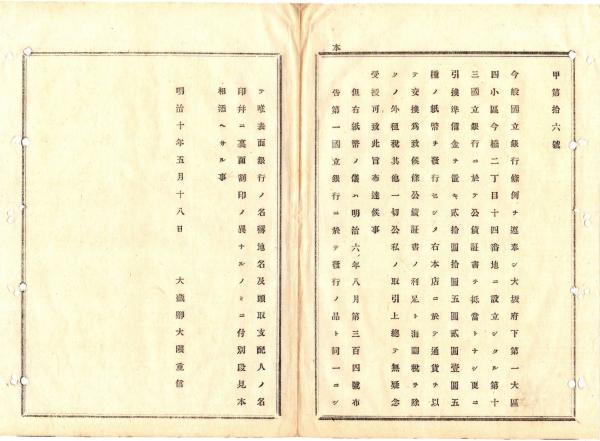 本
甲第拾六號
今般國立銀行條例ヲ遵奉シ大坂府下第一大區
四小區今橋二丁目十四番地ニ設立シタル第十
三國立銀行ニ於テ公債証書ヲ抵當トナシ更ニ
引換準備金ヲ置キ貳拾圓拾圓五圓貳圓壹圓五
種ノ紙幣ヲ發行セシメ右本店ニ於テ通貨ヲ以
テ交換爲致候條公債証書ノ利足ト海關税ヲ除
クノ外租税其他一切公私ノ取引上總テ無疑念
受授可致此旨布達候事
但右紙幣ノ儀ハ明治六年八月第三百四號布
告第一國立銀行ニ於テ發行ノ品ト同一ニシ
テ唯表面銀行ノ名稱地名及頭取支配人ノ名
印幷ニ裏面割印ノ異ナルノミニ付別段見本
相添ヘサル事
明治十年五月十八日　大藏卿大隈重信